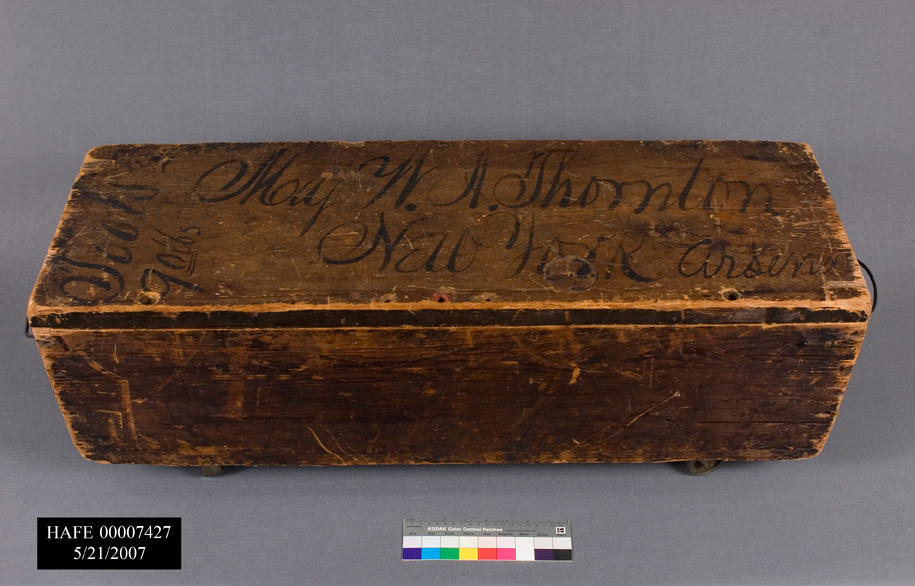 Maj W. A. Thornton
New York Arsen
HAFE 00007427
5/21/2007
KODAK Color Control Patches